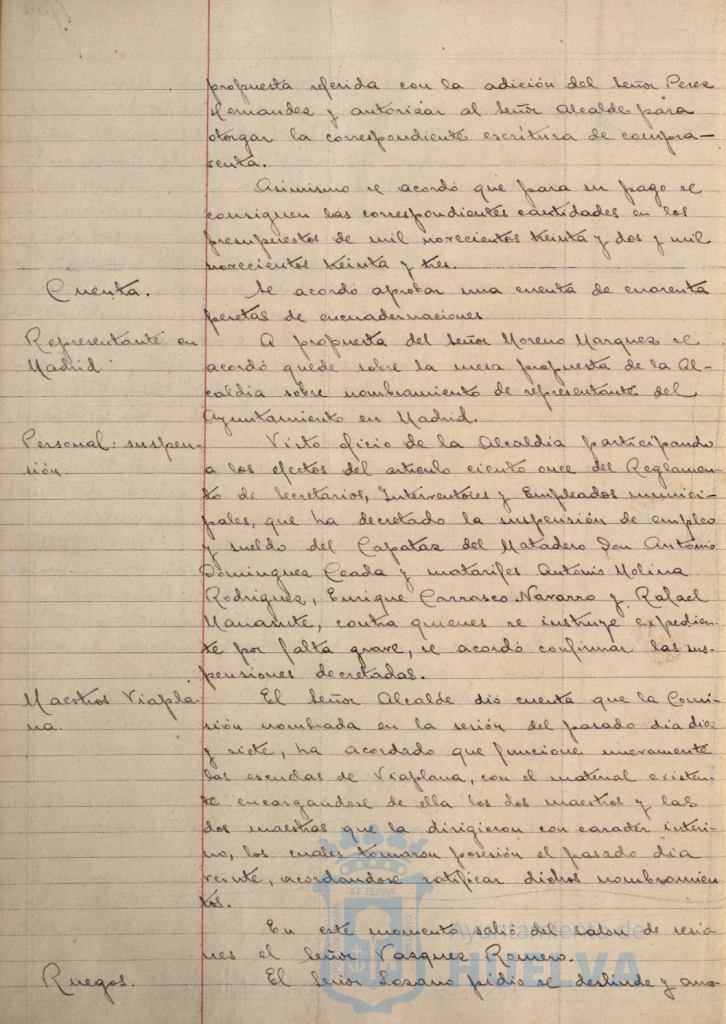 propuesta referida con la adición del Señor Perez
Hernandez y autorizar al Señor Alcalde para
otorgar la correspondiente escritura de compra-
venta.
Asimismo se acordó que para su pago se
consignen las correspondientes cantidades en los
presupuestos de mil novecientos treinta y dos y mil
novecientos treinta y tres.
Cuenta.
Se acordó aprobar una cuenta de cuarenta
pesetas de encuadernaciones
Representante en
Madrid
A propuesta del Señor Moreno Marquez se
acordó quede sobre la mesa propuesta de la Al-
caldia sobre nombramiento de representante del
Ayuntamiento en Madrid.
Personal: suspen-
sión.
Visto oficio de la Alcaldia participando
a los efectos del articulo ciento once del Reglamen-
to de Secretarios, Interventores y Empleados munici-
pales, que ha decretado la suspensión de empleo
y sueldo del Capataz del Matadero Don Antonio
Dominguez Ceada y matarifes Antonio Molina
Rodriguez, Enrique Carrasco Navarro y Rafael
contra quienes se instruye expedien-
te por falta grave, se acordó confirmar las sus-
pensiones decretadas.
Maestros Viapla-
na.
El Señor Alcalde dió cuenta que la Comi-
sión nombrada en la sesión del pasado dia diez
y siete, ha acordado que funcione nuevamente
las escuelas de Viaplana, con el material existen-
te encargandose de ella los dos maestros y las
dos maestras que la dirigieron con caracter interi-
no, los cuales tomaron posesión el pasado dia
veinte, acordandose ratificar dichos nombramien-
tos.
En este momento salió del salon de sesio-
nes el Señor Vazquez Romero.
Ruegos.
El Señor Lozano pidió se deslinde y amo-
Ayuntamiento de
HUELVA